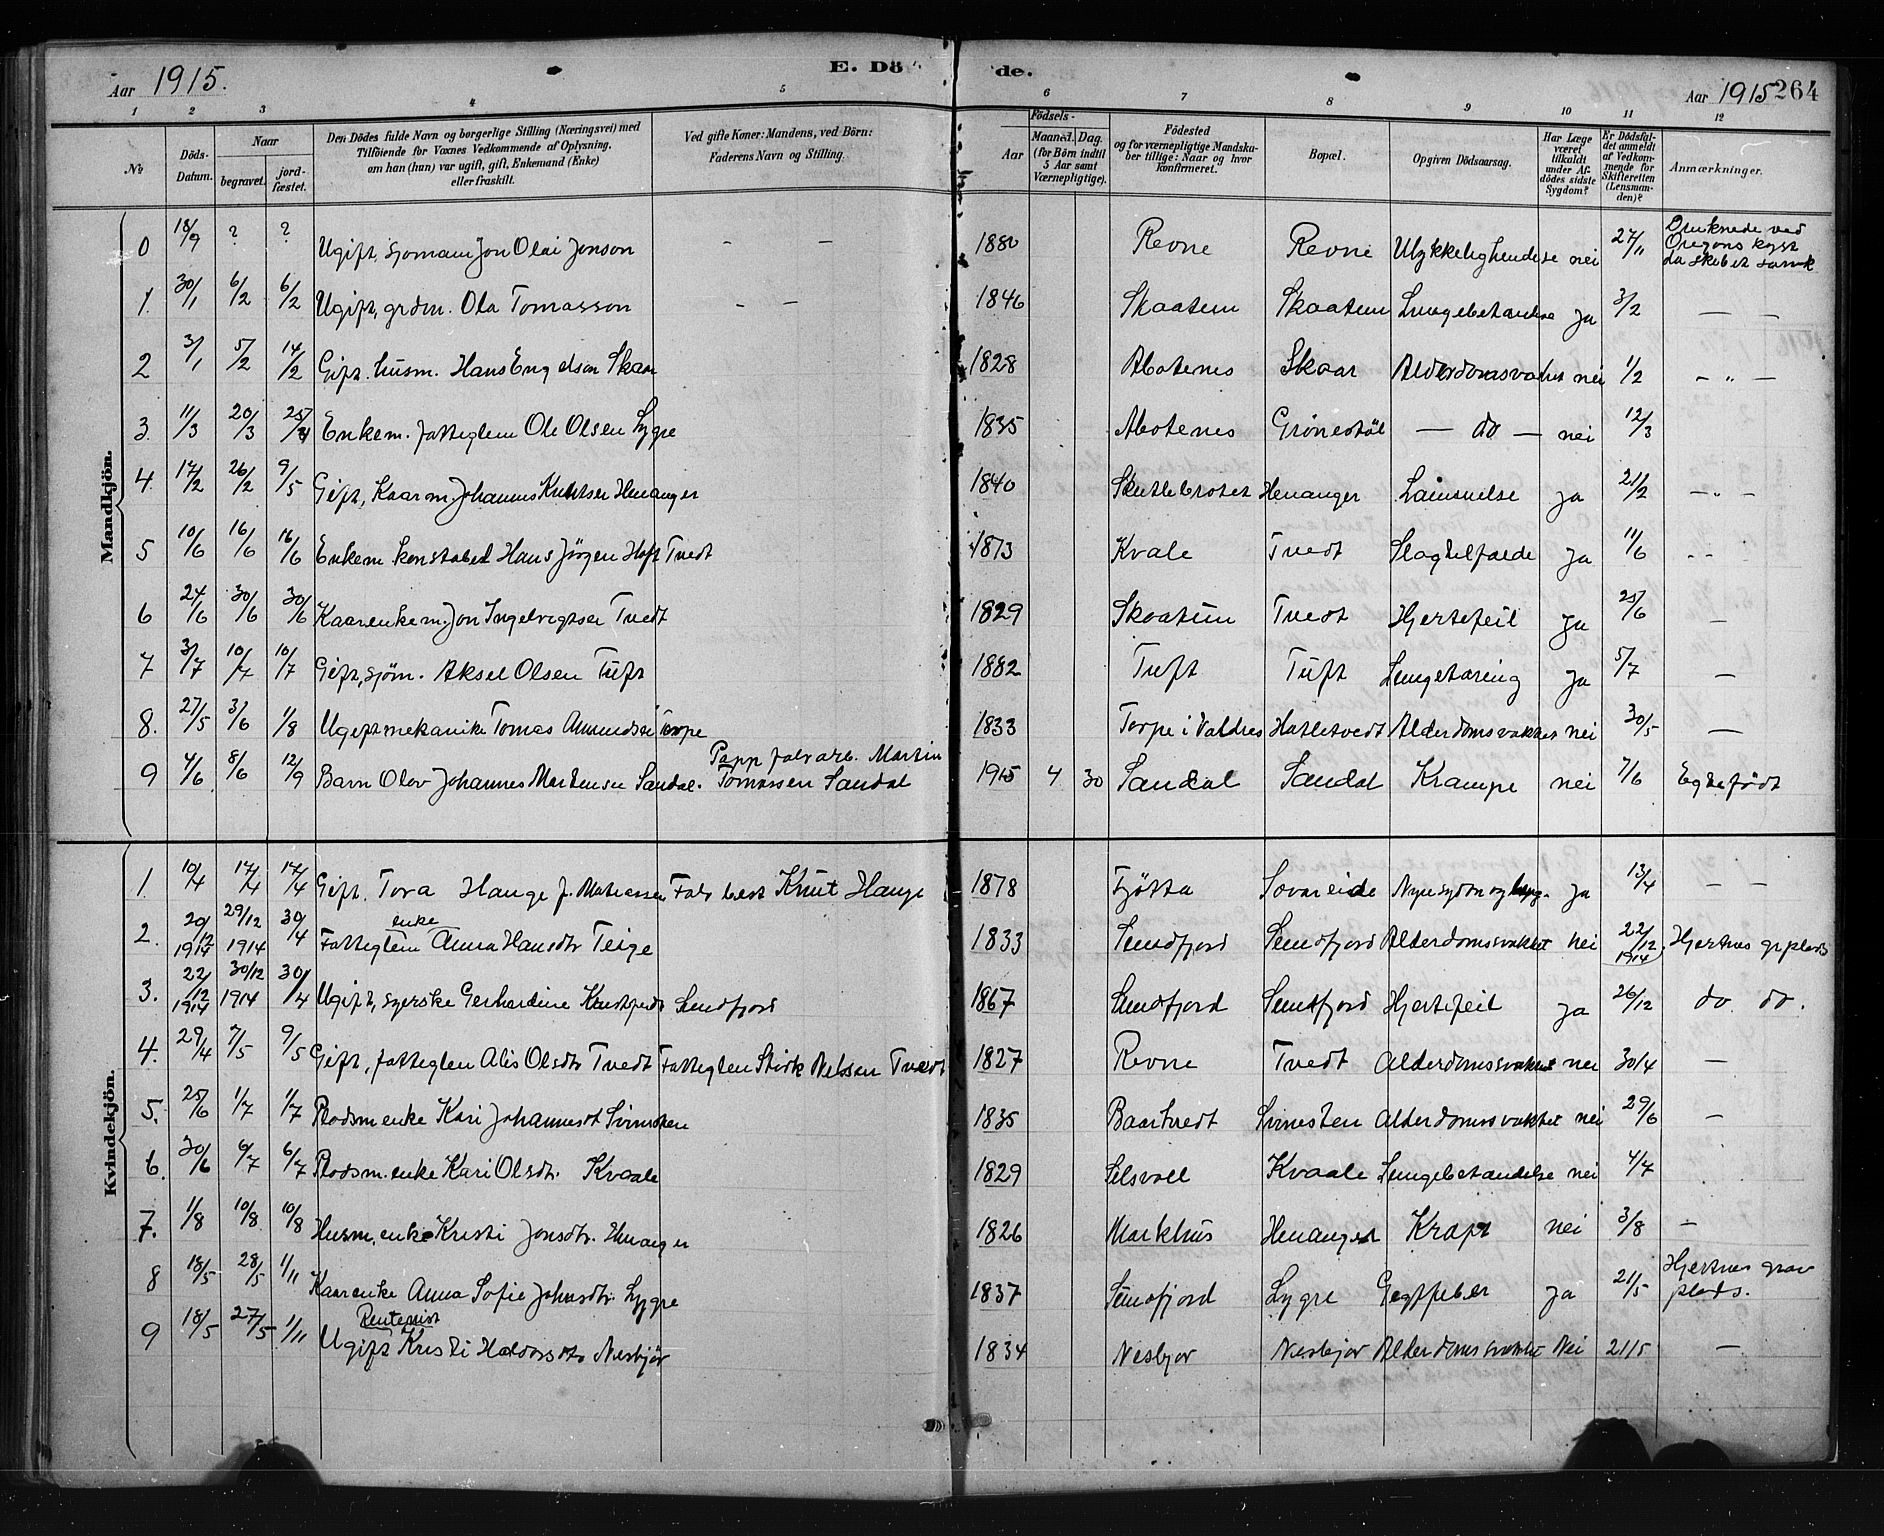 Aar 1915.
E. Dö de.
Aar 1915 264
1 2 3 4 5 6 7 8 9 10 11 12
No
Döds-Datum.
Naar
begravet.
jord-fæstet.
Den Dödes fulde Navn og borgerlige Stilling (Næringsvei) med
Tilföiende for Voxnes Vedkommende af Oplysning,
om han (hun) var ugift, gift, Enkemand (Enke)
eller fraskilt.
Ved gifte Koner: Mandens, ved Börn:
Faderens Navn og Stilling.
Födsels-
Aar
Maaned. Dag.
(for Börn indtil
5 Aar samt
Værnepligtige).
Födested
og for værnepligtige Mandska-
ber tillige: Naar og hvor
konfirmeret.
Bopæl.
Opgiven Dödsaarsag.
Har Læge
været
tilkaldt
under Af-
dödes sidste
Sygdom?
Er Dödsfal-
det anmeldt
af Vedkom-
mende for
Skifteretten
(Lensman-
den)?
Anmærkninger.
Mandkjön.
0 18/9 ? ? Ugift, sjomann Jon Olai Jonson - - 1880 Revne Revne Ulykkelighendelse nei 27/11 Druknede ved
Oregons kyst
da skibet sank
1. 30/1 6/2 6/2 Ugift, grdm. Ola Tomasson - - 1846 Skaatun Skaatun Lungebetændse ja 3/2 - -
2 3/1 5/2 14/2 Gift. husm. Hans Engelson Skaar 1828 Abotenes Skaar Alderdomsvakhet nei 1/2 - " -
3. 11/3 20/3 25/4 Enkem. fatteglem Ole Olsen Lygre 1835 Abotenes Grönestöl - do - nei 12/3
4. 17/2 26/2 9/5 Gift, Kaarm. Johannes Knutsen Henanger 1840 Skutlebrotet Henanger ja 21/2 - " -
5 10/6 16/6 16/6 Enkem konstabel Hans Jörgen Hoft Tvedt 1873 Kvale Tvedt Slagtilfælde ja 11/6 - -
6 24/6 30/6 30/6 Kaarenkem. Jon Ingelvigtsen Tvedt 1829 Skoatun Tvedt Hjertefeil ja 25/6 -
7 3/7 10/7 10/7 Gift, sjöm. Aksel Olsen Tuft 1882 Tuft Tuft Lungetæring ja 5/7 -
8. 27/5 3/6 1/8 Ugift mekanike Tomas Amundsen Torpe 1833 Torpe i Valdres Hatletvedt Alderdomsvakhet nei 30/5 -
Papp fabr arb. Martin
9 4/6 8/6 12/9 Barn Olav Johannes Martensen Sandal. Tomassen Sandal 1915 4 30 Sandal Sandal Krampe nei 7/6 Egtefödt
Kvindekjön.
1. 10/4 17/4 17/4 Gift. Tora Hauge f. Matiassen Fabr best Knut Hauge 1878 Tjötta Sovareide ja 13/4 - -
enke
2. 20/12 1914 29/12 1914 30/4 Fatteglem Anna Hansdtr Teige 1833 Sundfjord Sundfjord Alderdomsvakhet nei 22/12 1914. Hjertnes grplads
3. 22/12 1914 30/12 1914 30/4 Ugift, syerske Gerhardine Sundfjord 1867 Sundfjord Sundfjord Hjertefeil ja 26/12 do. do.
4. 29/4 7/5 9/5 Gift, fatteglem Alis Olsdtr Tvedt Fatteglem Stirk Nelssen Tvedt 1827 Revne Tvedt Alderdomssvakhet nei 30/4 -
5. 25/6 1/7 1/7 Plodsm enke Kari Johannesdt Svinesten 1835 Baartvedt Svinesten Alderdomssvakhet nei 29/6 -
6. 30/6 6/7 6/7 Plodsm. enke Kari Olsdtr. Kvaale 1829 Selsvoll Kvaale Lungebetændelse nei 4/7
7. 1/8 10/8 10/8 Husm. enke Kristi Jonsdtr. Henanger 1826 Markhus Henanger Kræft nei 3/8 -
8 18/5 28/5 1/11 Kaarenke Anna Sofie Johnsdtr. Lygre 1837 Sundfjord Lygre ja 21/5 Hjertnes grav
plads.
Rentenist
9 18/5 27/5 1/11 Ugift Kristi Haldorsdtr Nesbjör 1834 Nesbjor Nesbjor Alderdomssvakhet Nei 21/5 -